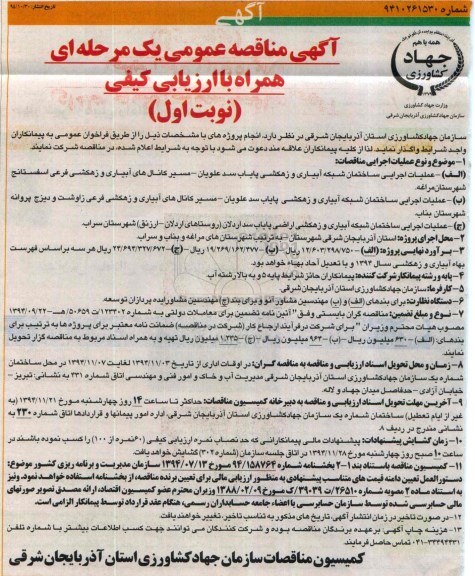 آگهی
شماره ۹۴۱۰۲۶۱۵۳۰
تاریخ انتشار: ۹۴/۱۰/۳۰
همه با هم
جهاد
کشاورزی
وزارت جهاد کشاورزی
سازمان جهاد کشاورزی آذربایجان شرقی
آگهی مناقصه عمومی یک مرحله ای
همراه با ارزیابی کیفی
(نوبت اول)
سازمان جهادکشاورزی استان آذربایجان شرقی در نظر دارد، انجام پروژه های با مشخصات ذیل را از طریق فراخوان عمومی به پیمانکاران
واجد شرایط واگذار نماید. لذا از کلیه پیمانکاران علاقه مند دعوت می شود با توجه به شرایط اعلام شده، در مناقصه شرکت نمایند.
۱- موضوع و نوع عملیات اجرایی مناقصات:
(الف) - عملیات اجرایی ساختمان شبکه آبیاری و زهکشی اراضی پایاب سد علویان - مسیر کانال های آبیاری و زهکشی فرعی اسفستانج
شهرستان مراغه.
(ب) - عملیات اجرایی ساختمان شبکه آبیاری و زهکشی پایاب سد علویان - مسیر کانال های آبیاری و زهکشی فرعی زاوشت و دیزج پروانه
شهرستان بناب.
(ج) - عملیات اجرایی ساختمان شبکه آبیاری و زهکشی اراضی پایاب سد اردلان (روستاهای اردلان - ارزنق) شهرستان سراب
۲- محل اجرای پروژه: استان آذربایجان شرقی شهرستان به ترتیب شهرستان های مراغه و بناب و سراب
۳- برآورد نهایی پروژه: (الف)- ۱۲/۶۰۳/۲۹۸/۷۵۰ ریال -(ب)- ۱۹/۲۶۹/۱۶۲/۳۷۰ ریال -(ج)- ۲۴/۶۹۲/۳۲۷/۶۷۲ ریال هر سه بر اساس فهرست
بهاء آبیاری و زهکشی سال ۱۳۹۴ و با تعدیل آحاد بهاء خواهد بود.
۴- پایه و رشته پیمانکار شرکت کننده: پیمانکاران حائز شرایط پایه ۵ و به بالا رشته آب
۵- کارفرما: سازمان جهادکشاورزی استان آذربایجان شرقی
۶- دستگاه نظارت: برای بندهای (الف) و (ب) مهندسین مشاور آنو و برای بند (ج) مهندسین مشاور ایده پردازان توسعه.
۷- نوع و مبلغ تضمین: مناقصه گران بایستی وفق " آئین نامه تضمین برای معاملات دولتی به شماره ۱۲۳۴۰۲/ت ۵۰۶۵۹ هـ - ۱۳۹۴/۰۹/۲۲
مصوب هیات محترم وزیران " برای شرکت در فرآیند ارجاع کار (شرکت در مناقصه) ضمانت نامه معتبر برای پروژه ها به ترتیب برای
بندهای: (الف) - ۶۳۰ میلیون ریال -(ب)- ۹۶۳ میلیون ریال -(ج)- ۱,۲۳۵ میلیون ریال تهیه و به همراه اسناد مربوط به مناقصه گزار تحویل
نمایند.
۸- زمان و محل تحویل اسناد ارزیابی و مناقصه به مناقصه گران: در اوقات اداری از تاریخ ۱۳۹۴/۱۱/۰۳ لغایت ۱۳۹۴/۱۱/۰۷ در محل ساختمان
شماره یک سازمان جهادکشاورزی استان آذربایجان شرقی مدیریت آب و خاک و امور فنی و مهندسی اتاق شماره ۳۳۱ به نشانی: تبریز -
خیابان آزادی - حدفاصل میدان جهاد و لاله.
۹- آخرین مهلت تحویل اسناد ارزیابی و مناقصه به دبیرخانه کمیسیون مناقصات: حداکثر تا ساعت ۱۴ روز چهارشنبه مورخ ۱۳۹۴/۱۱/۲۱ (به
غیر از ایام تعطیل) ساختمان شماره یک سازمان جهادکشاورزی استان آذربایجان شرقی، اداره امور پیمانها و قراردادها اتاق شماره ۲۳۰ به
نشانی مندرج در ردیف ۸
۱۰- زمان گشایش پیشنهادات: پیشنهادات مالی پیمانکارانی که حد نصاب نمره ارزیابی کیفی (۶۰ نمره از ۱۰۰) را کسب نموده باشند در
ساعت ۱۰ صبح روز چهارشنبه مورخ ۱۳۹۴/۱۱/۲۸ در اتاق جلسه سازمان (شماره ۳۰۲) گشایش خواهد یافت.
۱۱- کمیسیون مناقصه باستناد بند ۱-۲ بخشنامه شماره ۹۴/۱۵۸۷۶۴ مورخ ۱۳۹۴/۰۷/۱۳ سازمان مدیریت و برنامه ریزی کشور موضوع:
دستورالعمل تعیین دامنه قیمت های متناسب پیشنهادی به منظور ارزیابی مالی برای تعیین برنده مناقصه، از بخشنامه استفاده خواهد نمود، و نیز
به استناد ماده ۲ مصوبه شماره ۲۶۵۱۰/ت ۳۹۰۳۹ ک مورخ ۱۳۸۸/۰۲/۰۹ وزیران محترم عضو کمیسیون اقتصاد، ارائه مصدق تصویر صورتهای
مالی حسابرسی شده توسط سازمان حسابرسی یا اعضاء جامعه حسابداران رسمی، هنگام عقد قرارداد توسط پیمانکار الزامی است.
۱۲- در صورت تاخیر در زمان انتشار آگهی، تاریخ های مذکور به تناسب تاخیر، تغییر خواهند یافت.
۱۳- هزینه چاپ آگهی: برعهده برندگان مناقصه بوده و شرکت کنندگان می توانند جهت کسب اطلاعات بیشتر با شماره تلفن
۰۴۱-۳۴۴۹۴۳۳۱ تماس حاصل فرمایند.
کمیسیون مناقصات سازمان جهاد کشاورزی استان آذربایجان شرقی